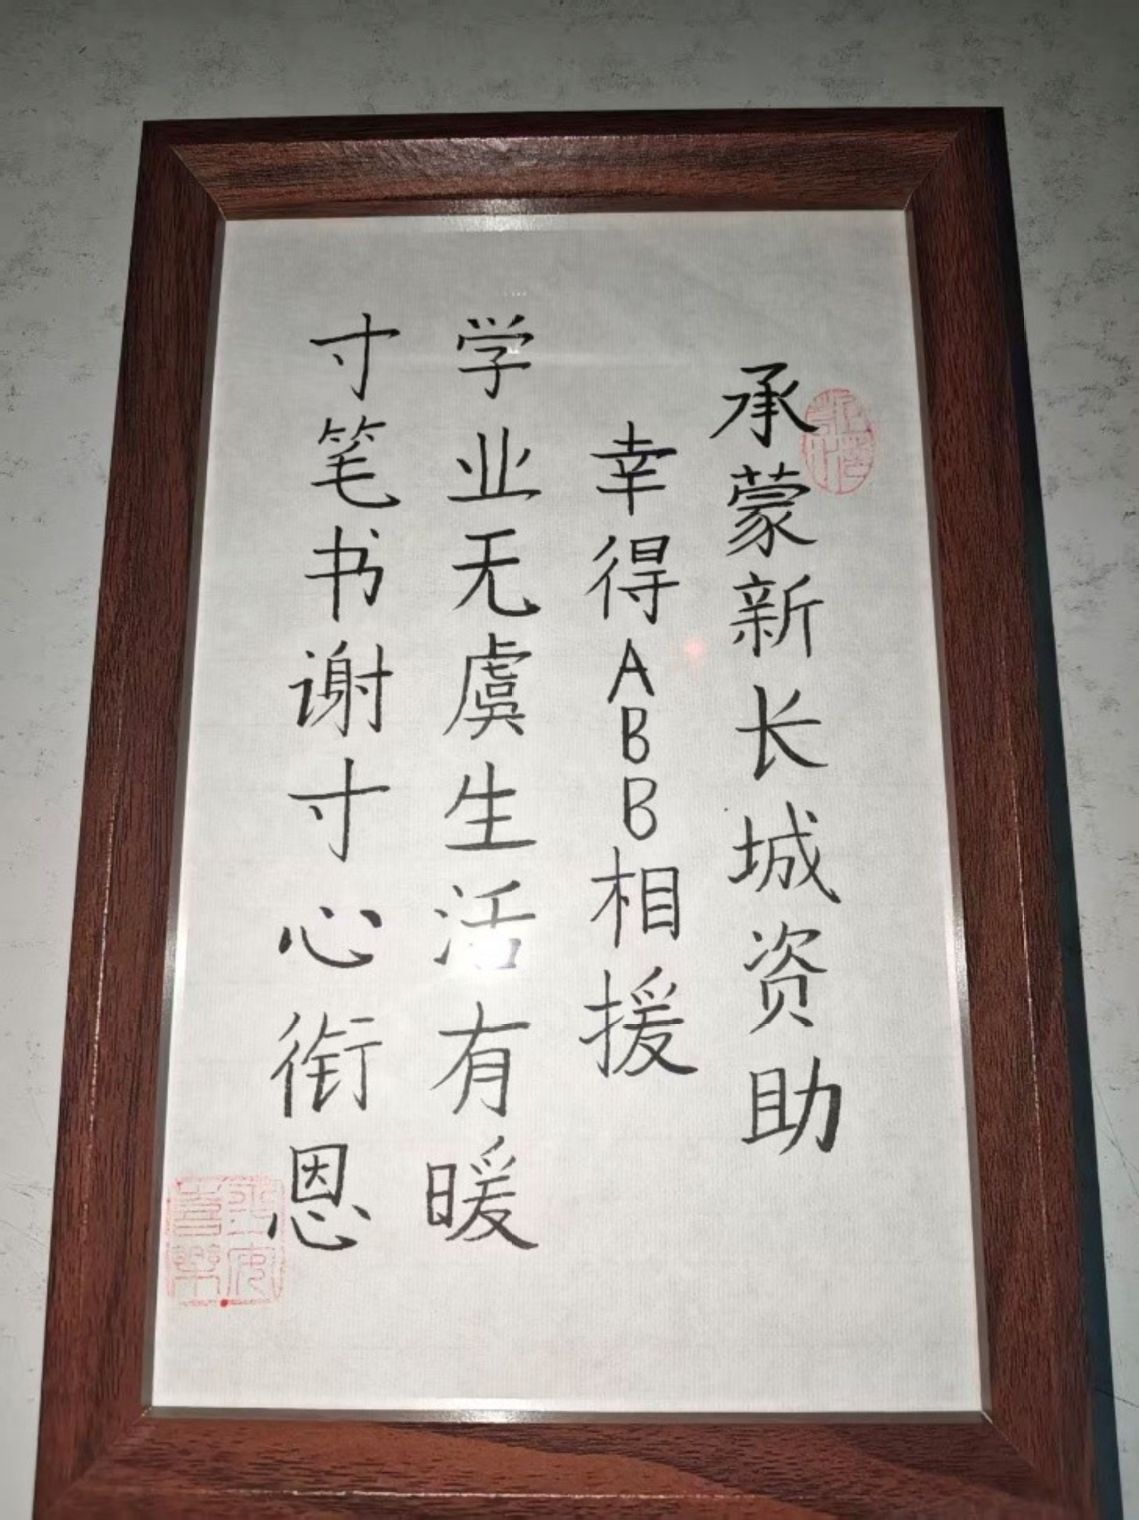 承蒙新长城资助
幸得ABB相援
学业无虞生活有暖
寸笔书谢寸心衔恩
平安
喜樂